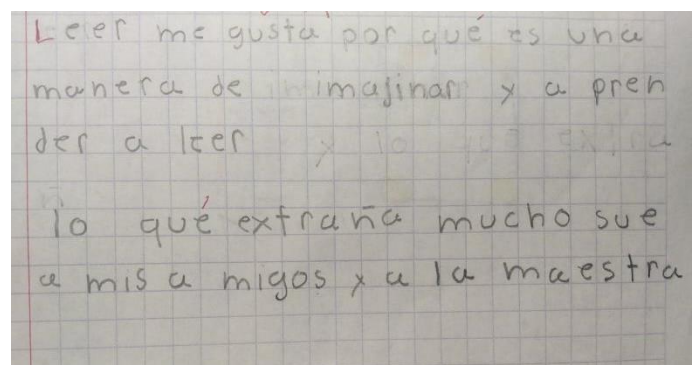 Leer me gusta por qué es una
manera de imajinar y a pren
der a leer
lo qué extraña mucho sue
a mis a migos y a la maestra